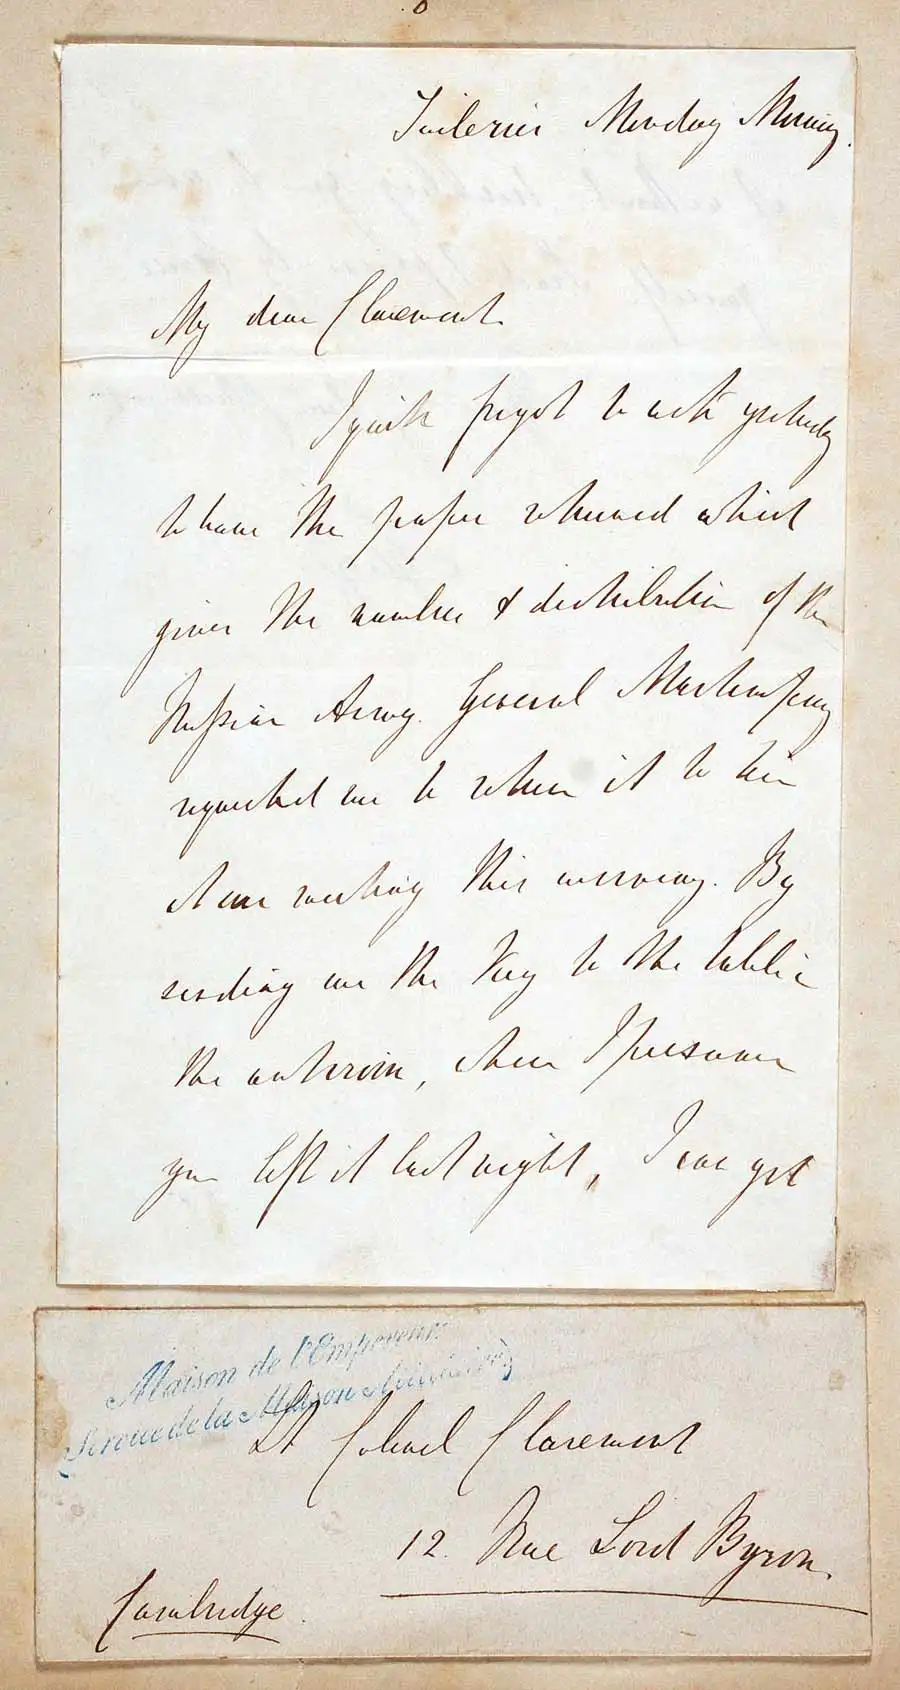 Tuileries Monday Morning.
My dear Claremont
I quite forgot to ask yesterday
to have the paper returned which
gives the number & distribution of the
Russian Army. General Martimprey
requested me to return it to him
at our meeting this morning. By
sending me the key to the table in
the anteroom, where I presume
you left it last night, I can get
Maison de l'Empereur
(Service de la Maison Militaire)
Lt Colonel Claremont
12. Rue Lord Byron.
Cambridge.